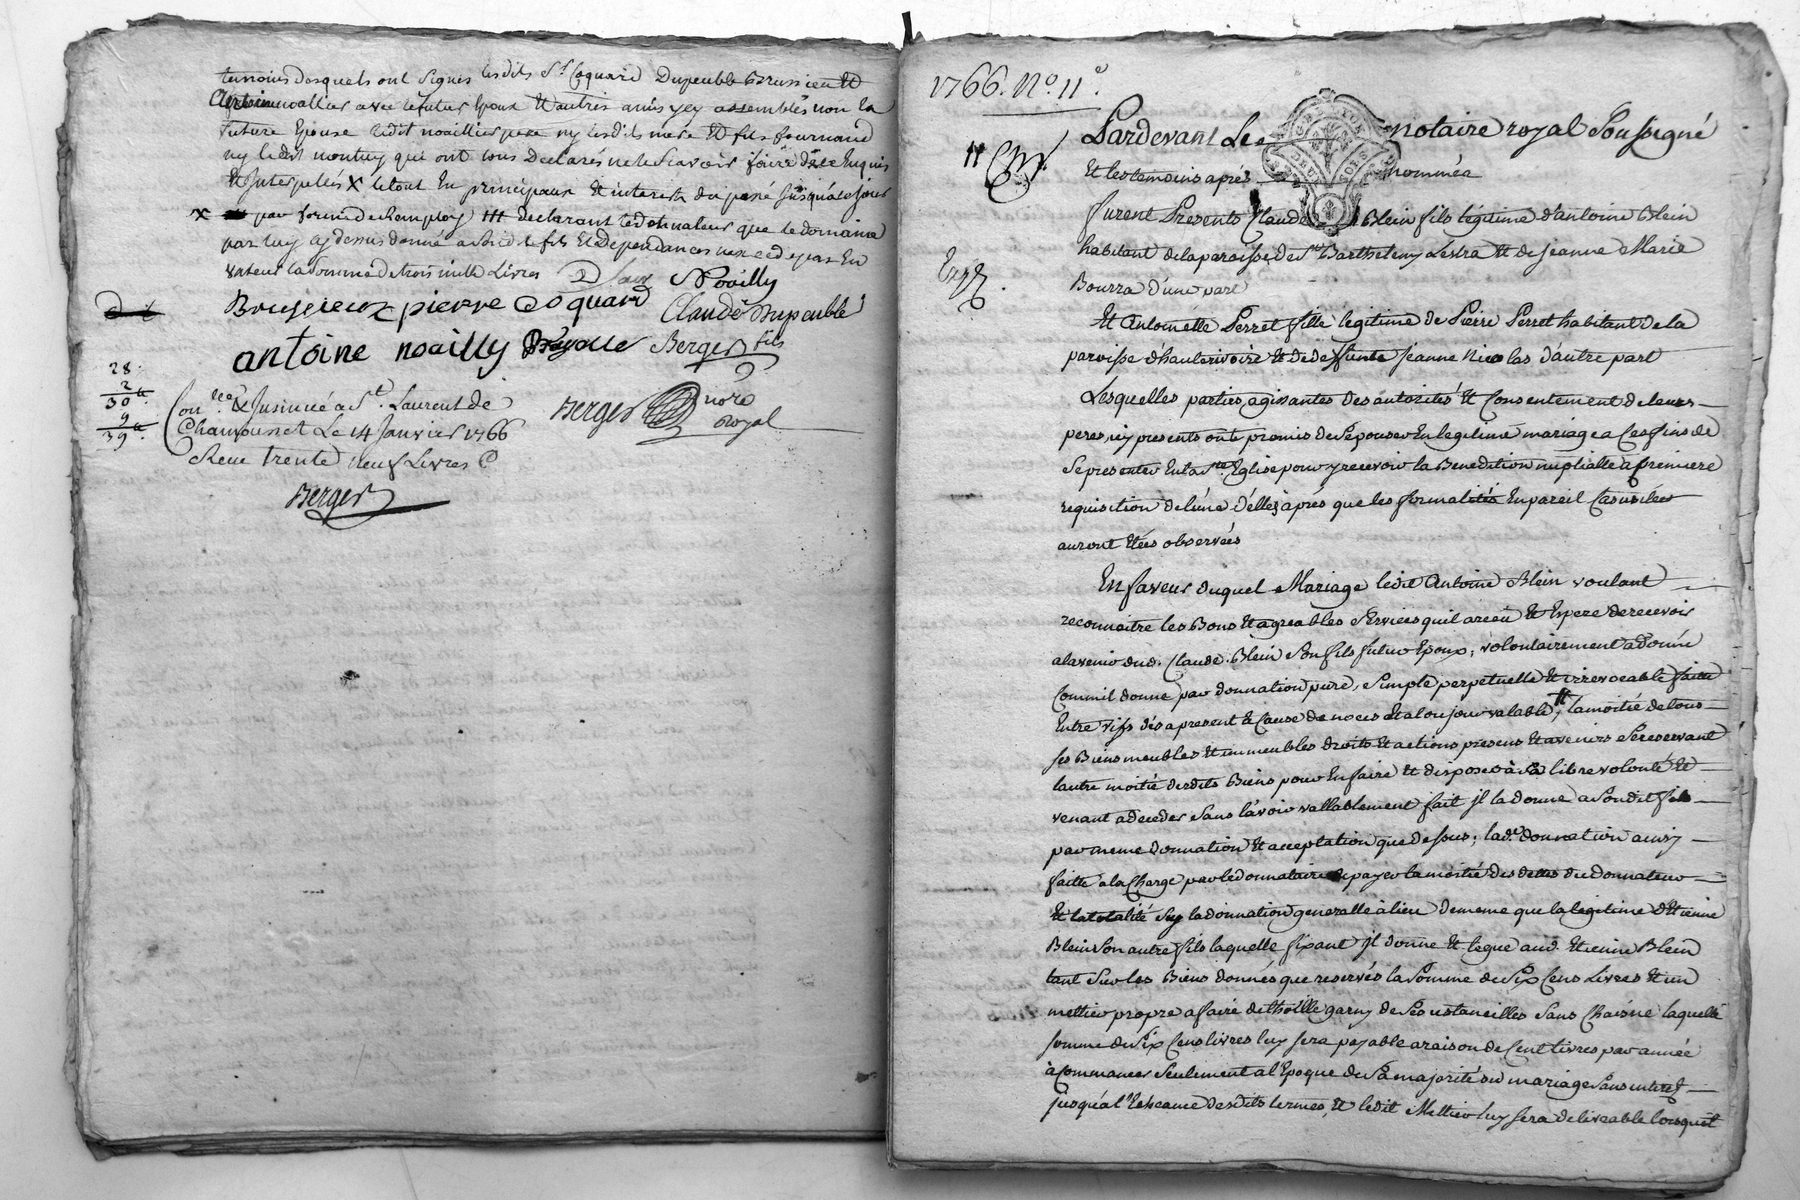 temoins desquels ont signés lesdits Sr Coquard Dupeuble Brussieu Et
Antoine noallier avec le futur Epoux Et autres amis y ey assemblés non la
future Epouse ledit noaillier pere ny lesdits mere Et fils fournand
ny ledit montuy qui ont tous Declarés ne le scavoir faire de ce Enquis
Et Interpellés X le tout En principaux Et interets du passé jusqu'à ce jour
X par forme de Remploy ttt declarant le donnateur que le domaine
par luy cy dessus donné audit le fils Et Dependances nexcede pas En
valeur la somme de trois mille Livres Noailly
Brussieux pierre Coquard Claude Dupeuble
antoine noailly Berger fils
28
2
30
9
39
Con.lée & Insinué a St. Laurent de
Chamousset Le 14 Janvier 1766
Reçu trente neuf Livres
Berger nore
Royal
Berger
1766. No. 11e.
Pardevant Le notaire royal Soussigné
Et les temoins aprés nommés
furent Presents Claude Blein fils légitime d'antoine Blein
habitant de la paroisse de St Barthelemy Lestra Et de jeanne Marie
Bourra d'une part
Et Antoinette Perret fille legitime de Pierre Perret habitant de la
paroisse d'hauterivoire Et de deffunte jeanne Nicolas d'autre part
Lesquelles parties agissantes des autorités Et Consentement de leurs
peres icy presents ont promis de s'Epouser En legitime mariage a Ces fins de
se presenter En la Ste Eglise pour y recevoir la Benediction nuptialle a premiere
requisition de lune d'elles aprés que les formalités En pareil Cas usitées
auront Etées observées
En faveur duquel Mariage ledit Antoine Blein voulant
reconnoitre les Bons Et agreables services quil a reçu Et Espere de recevoir
a lavenir dud. Claude Blein son fils futur Epoux, volontairement a donné
Comme il donne par donnation pure, simple perpetuelle Et irrevocable faitte
Entre vifs dés a present a Cause de noces Et a toujour valable, tt la moitié de tous
ses Biens meubles Et immeubles droits Et actions presens Et avenirs se reservant
lautre moitié desdits Biens pour En faire Et disposer à sa libre volonté Et
venant a deceder sans l'avoir vallablement fait jl la donne a son dit fils
par meme donnation Et acceptation que dessus; lad.e donnation ainsy
faitte a la Charge par le donnataire de payer la moitié des dettes du donnateur
Et la totalité sy la donnation generalle à lieu de meme que la legitime d'Etienne
Blein son autre fils laquelle fixant jl donne Et legue aud. Etienne Blein
tant sur les Biens donnés que reservés la somme de six Cens Livres Et un
mettier propre a faire de thoille garny de ses ustancilles sans Chaisne laquelle
somme de six Cens livres luy sera payable a raison de Cent livres par année
à Commancer seulement a l'Epoque de sa majorité ou mariage sans interet
jusqua l'Echeance desdits termes, Et ledit Mettier luy sera delivrable lorsquil